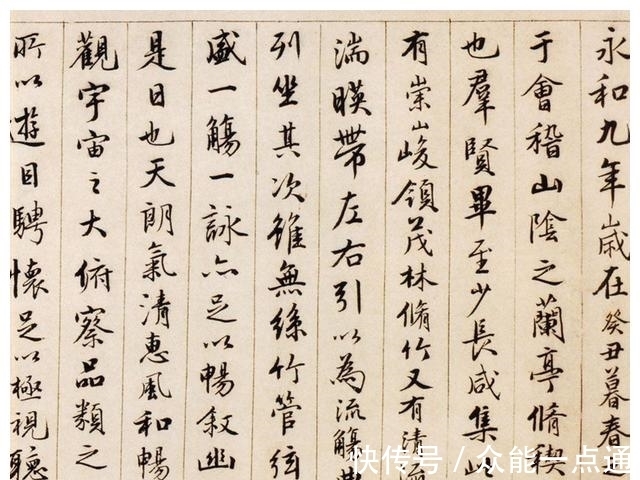 永和九年歲在癸丑暮春
于會稽山陰之蘭亭脩稧
也羣賢畢至少長咸集
有崇山峻領茂林脩竹又有清
湍暎帶左右引以為流觴
列坐其次雖無絲竹管弦
盛一觴一詠亦足以暢敘幽
是日也天朗氣清惠風和暢
觀宇宙之大俯察品類之
所以遊目騁懷足以極視聽
快传号 / 众能一点通